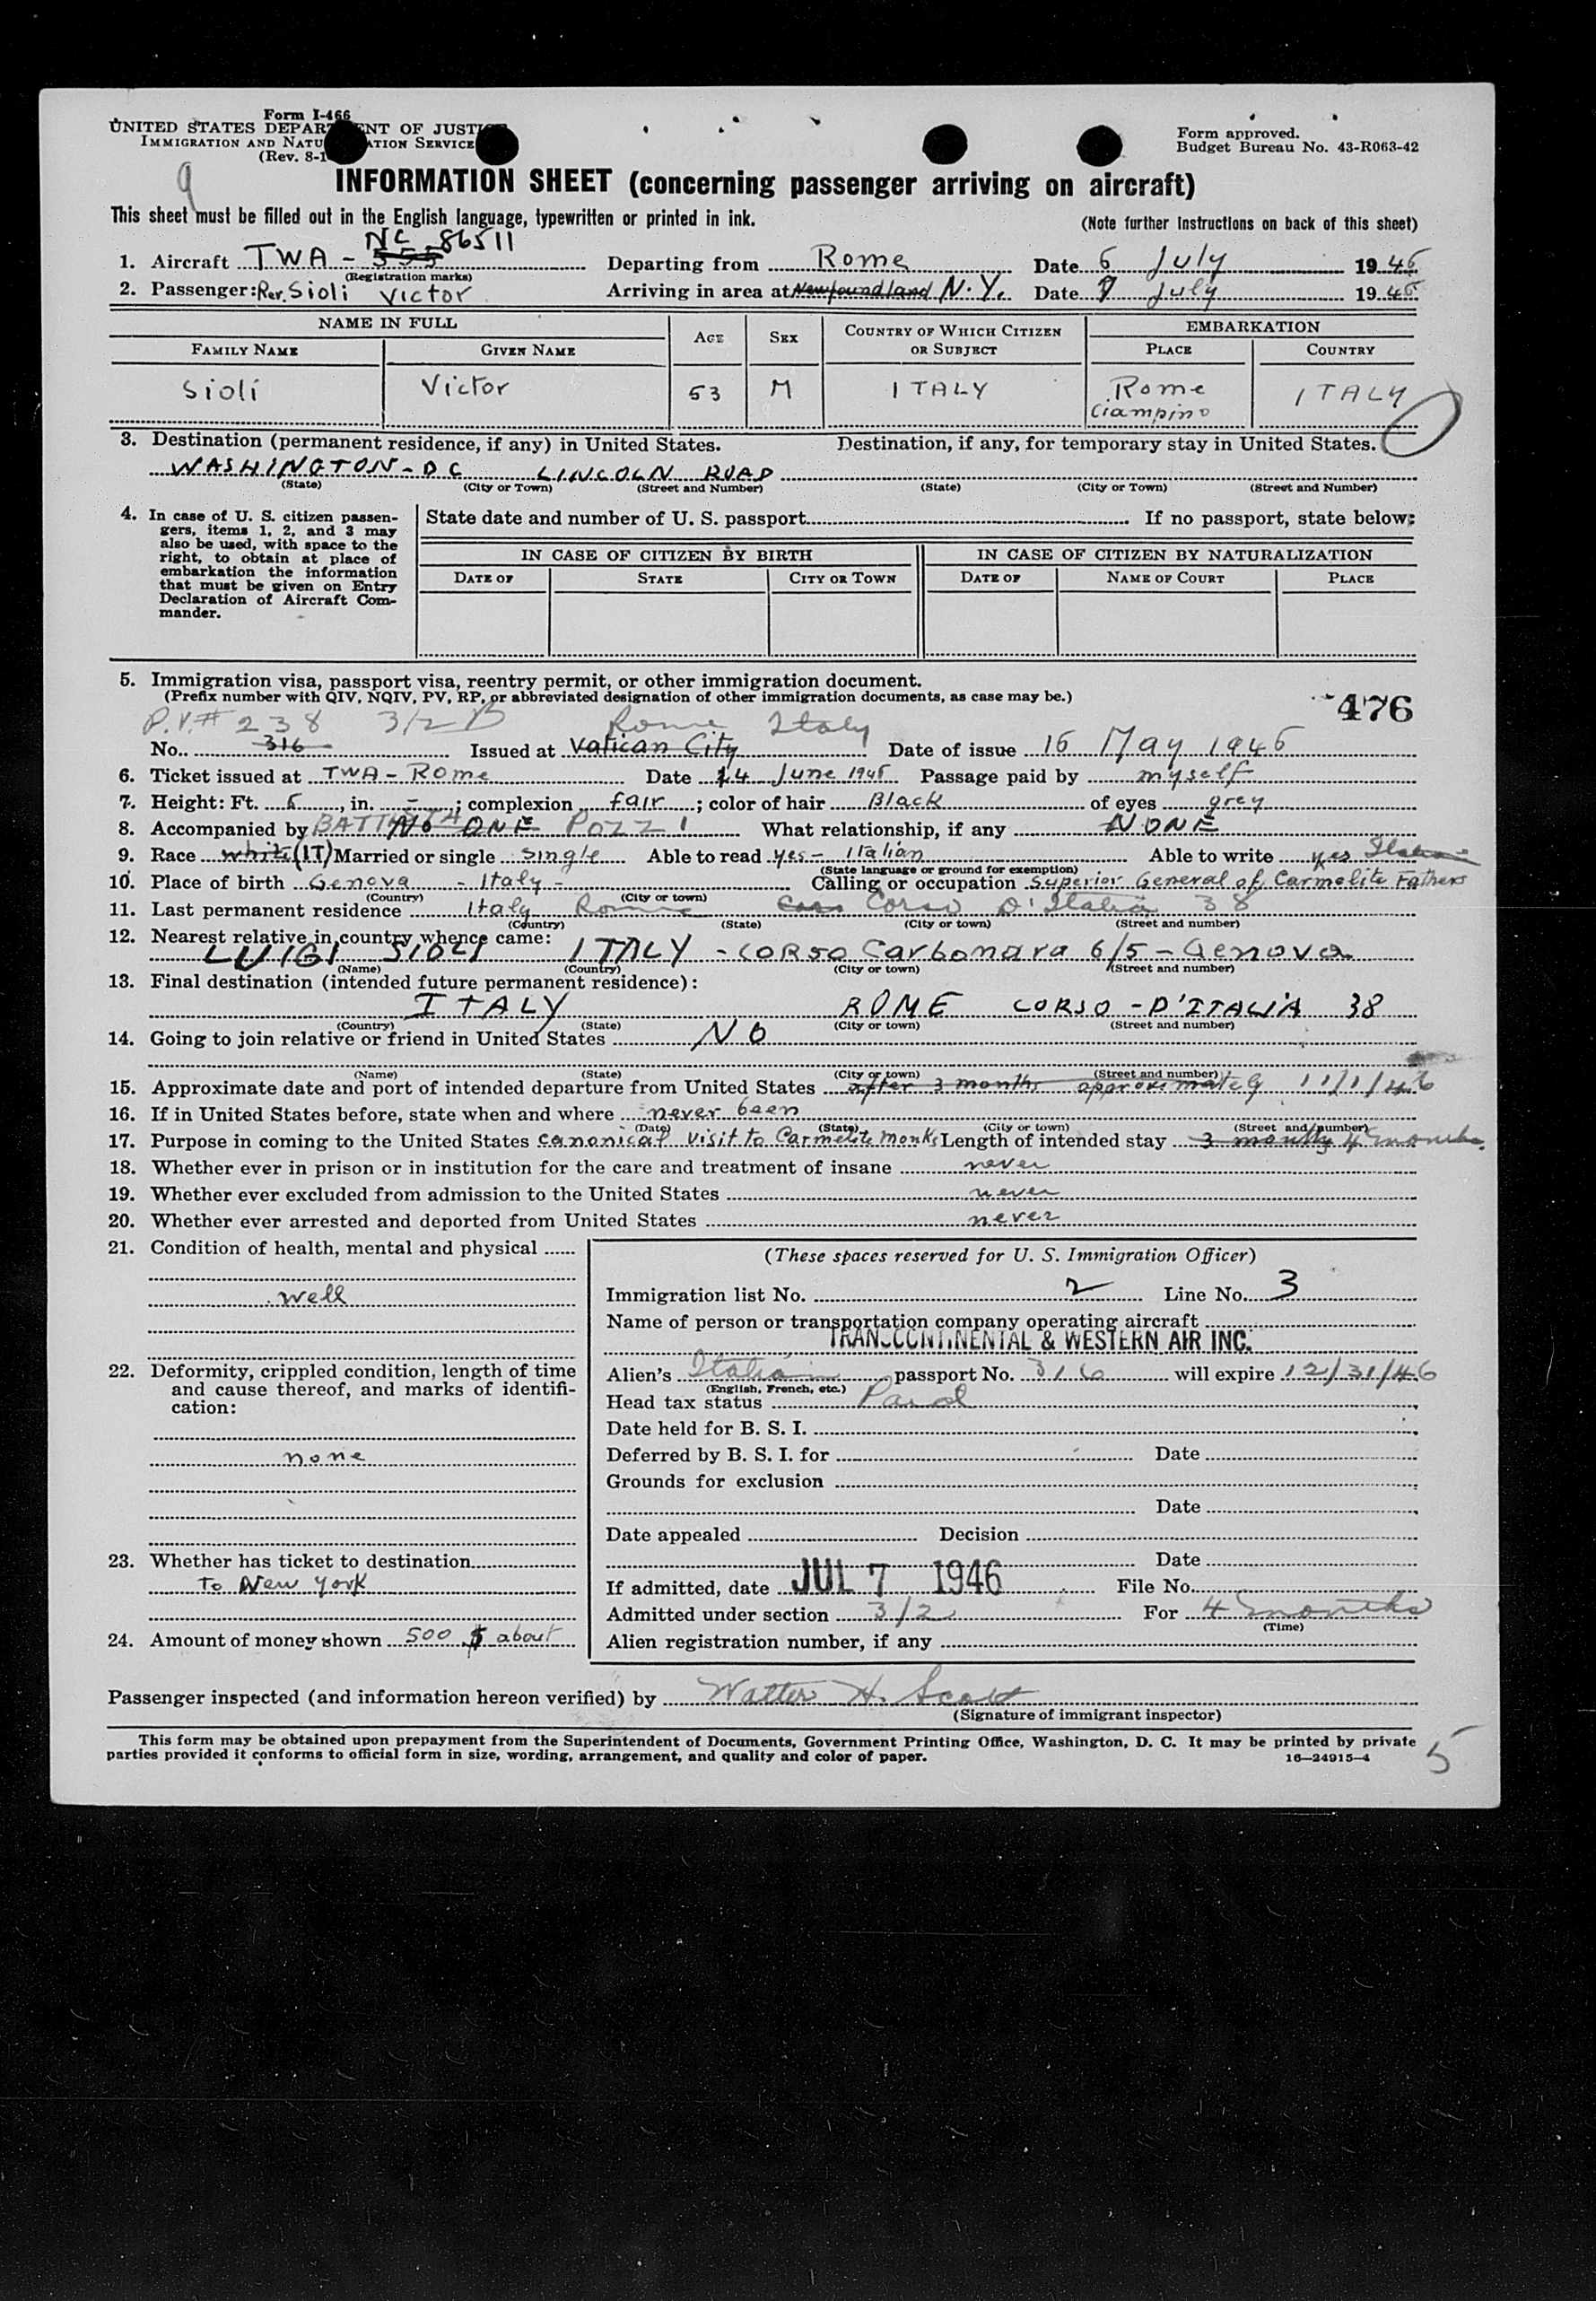 Form I-466
UNITED STATES DEPARTMENT OF JUSTICE
IMMIGRATION AND NATURALIZATION SERVICE
(Rev. 8-1
Form approved.
Budget Bureau No. 43-R063-42
9
INFORMATION SHEET (concerning passenger arriving on aircraft)
This sheet must be filled out in the English language, typewritten or printed in ink.
(Note further instructions on back of this sheet)
NC 86511
1. Aircraft TWA - 555 Departing from Rome Date 6 July 1946
(Registration marks)
2. Passenger: Rev. Sioli Victor Arriving in area at Newfoundland N.Y. Date 7 July 1946
NAME IN FULL AGE SEX COUNTRY OF WHICH CITIZEN OR SUBJECT EMBARKATION
FAMILY NAME GIVEN NAME PLACE COUNTRY
Sioli Victor 53 M ITALY Rome ITALY
Ciampino
3. Destination (permanent residence, if any) in United States. Destination, if any, for temporary stay in United States.
WASHINGTON - DC LINCOLN ROAD
(State) (City or Town) (Street and Number) (State) (City or Town) (Street and Number)
4. In case of U. S. citizen passengers, items 1, 2, and 3 may also be used, with space to the right, to obtain at place of embarkation the information that must be given on Entry Declaration of Aircraft Commander.
State date and number of U. S. passport If no passport, state below:
IN CASE OF CITIZEN BY BIRTH IN CASE OF CITIZEN BY NATURALIZATION
DATE OF STATE CITY OR TOWN DATE OF NAME OF COURT PLACE
5. Immigration visa, passport visa, reentry permit, or other immigration document.
(Prefix number with QIV, NQIV, PV, RP, or abbreviated designation of other immigration documents, as case may be.)
476
P.V.# 238 3/2 B Rome Italy
No. 316 Issued at Vatican City Date of issue 16 May 1946
6. Ticket issued at TWA - Rome Date 14 June 1946 Passage paid by myself
7. Height: Ft. 5, in. -; complexion fair; color of hair Black of eyes grey
8. Accompanied by BATTISTA NO ONE POZZI What relationship, if any NONE
9. Race white (IT) Married or single single Able to read yes - Italian Able to write yes Italian
(State language or ground for exemption)
10. Place of birth Genova - Italy - Calling or occupation Superior General of Carmelite Fathers
(Country) (City or town)
11. Last permanent residence Italy Rome Corso Corso D'Italia 38
(Country) (State) (City or town) (Street and number)
12. Nearest relative in country whence came:
LUIGI SIOLI ITALY - CORSO Carbonara 6/5 - Genova
(Name) (Country) (City or town) (Street and number)
13. Final destination (intended future permanent residence):
ITALY ROME CORSO - D'ITALIA 38
(Country) (State) (City or town) (Street and number)
14. Going to join relative or friend in United States NO
(Name) (State) (City or town) (Street and number)
15. Approximate date and port of intended departure from United States after 3 months approximately 11/1/46
16. If in United States before, state when and where never been
(Date) (State) (City or town) (Street and number)
17. Purpose in coming to the United States canonical visit to Carmelite monks Length of intended stay 3 months 4 months.
18. Whether ever in prison or in institution for the care and treatment of insane never
19. Whether ever excluded from admission to the United States never
20. Whether ever arrested and deported from United States never
21. Condition of health, mental and physical
well
22. Deformity, crippled condition, length of time and cause thereof, and marks of identification:
none
23. Whether has ticket to destination
To New York
24. Amount of money shown 500 $ about
(These spaces reserved for U. S. Immigration Officer)
Immigration list No. 2 Line No. 3
Name of person or transportation company operating aircraft
TRANSCONTINENTAL & WESTERN AIR INC.
Alien's Italian passport No. 316 will expire 12/31/46
(English, French, etc.)
Head tax status Paid
Date held for B. S. I.
Deferred by B. S. I. for Date
Grounds for exclusion
Date
Date appealed Decision
Date
If admitted, date JUL 7 1946 File No.
Admitted under section 3/2 For 4 months
(Time)
Alien registration number, if any
Passenger inspected (and information hereon verified) by Walter H. Scott
(Signature of immigrant inspector)
This form may be obtained upon prepayment from the Superintendent of Documents, Government Printing Office, Washington, D. C. It may be printed by private
parties provided it conforms to official form in size, wording, arrangement, and quality and color of paper.
16—24915-4
5